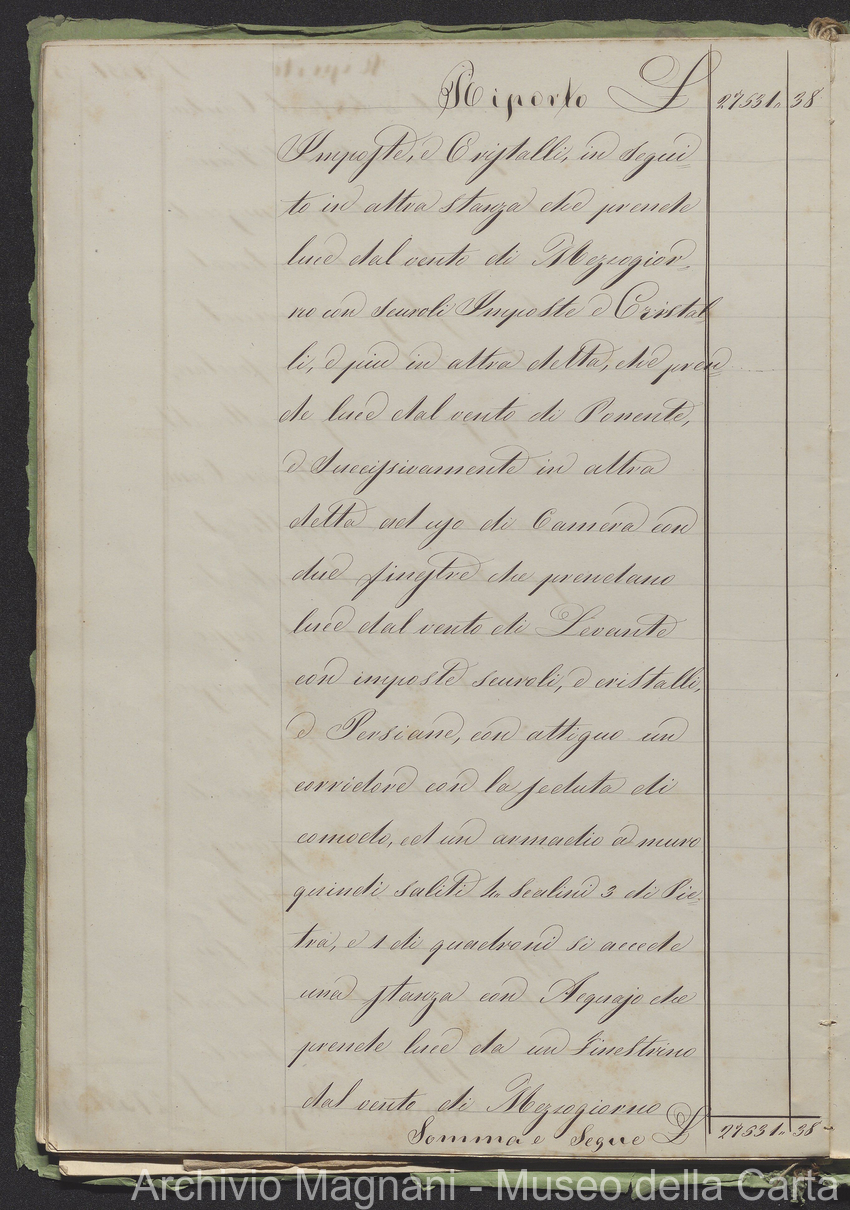 Riporto £ 27531„ 38
Imposte, e Cristalli, in segui=
to in altra stanza che prende
luce dal vento di Mezzogior=
no con scuroli Imposte e Cristal=
li, e piu in altra detta, che pren=
de luce dal vento di Ponente,
e Successivamente in altra
detta ad uso di Camera con
due finestre che prendano
luce dal vento di Levante
con imposte scuroli, e cristalli,
e Persiane, con attiguo un
corridore con la seduta di
comodo, ed un armadio a muro
quindi saliti 4„ Scalini 3 di Pie=
tra, e 1 di quadroni si accede
una stanza con Acquajo che
prende luce da un Finestrino
dal vento di Mezzogiorno
Somma e Segue £ 27531„ 38
Archivio Magnani - Museo della Carta